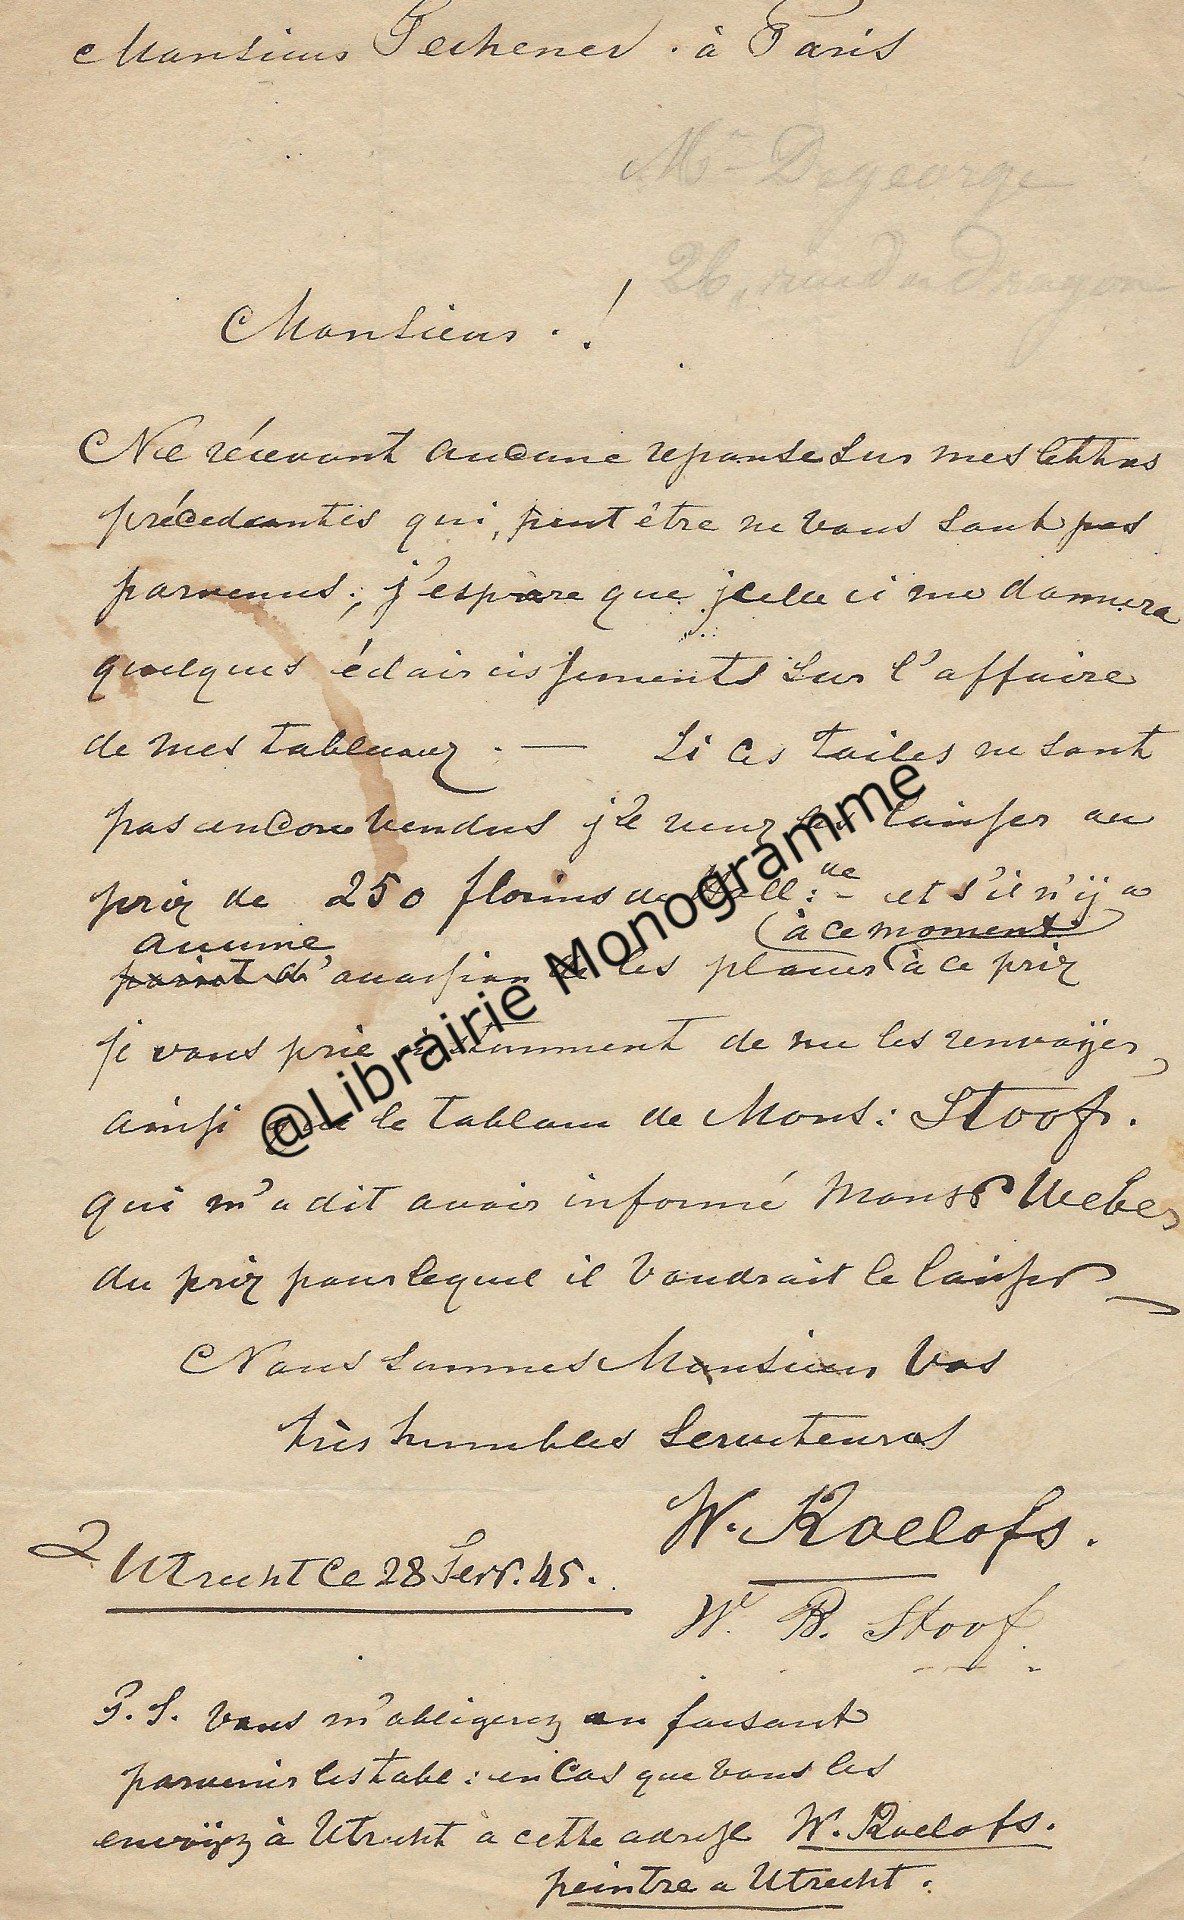 Monsieur Techener . à Paris
Mr Degeorge
26, rue du Dragon
Monsieur . !
Ne récevant aucune reponse sur mes lettres
précedentes qui, peut être ne vous sont pas
parvenus ; j'espère que celle ci me donnera
quelques éclaircissements sur l'affaire
de mes tableaux . — Si ces toiles ne sont
pas encore vendus je veux les laisser au
prix de 250 florins de Holl : de - et s'il n'ÿ a
aucune (à ce moment)
point d'occasion de les placer à ce prix
je vous prie instamment de me les renvoÿer,
ainsi que le tableau de Mons : Stoof .
qui m'a dit avoir informé Monsr Weber
du prix pour lequel il voudrait le laisser
Nous sommes Monsieur Vos
très humbles Serviteurs
W. Roelofs .
Utrecht Ce 28 Sept. 45 .
W. B. Stoof
P. S. Vous m'obligerez en faisant
parvenir les tabl : en Cas que vous les
envoÿez à Utrecht a cette adresse W. Roelofs .
peintre a Utrecht .
@Librairie Monogramme